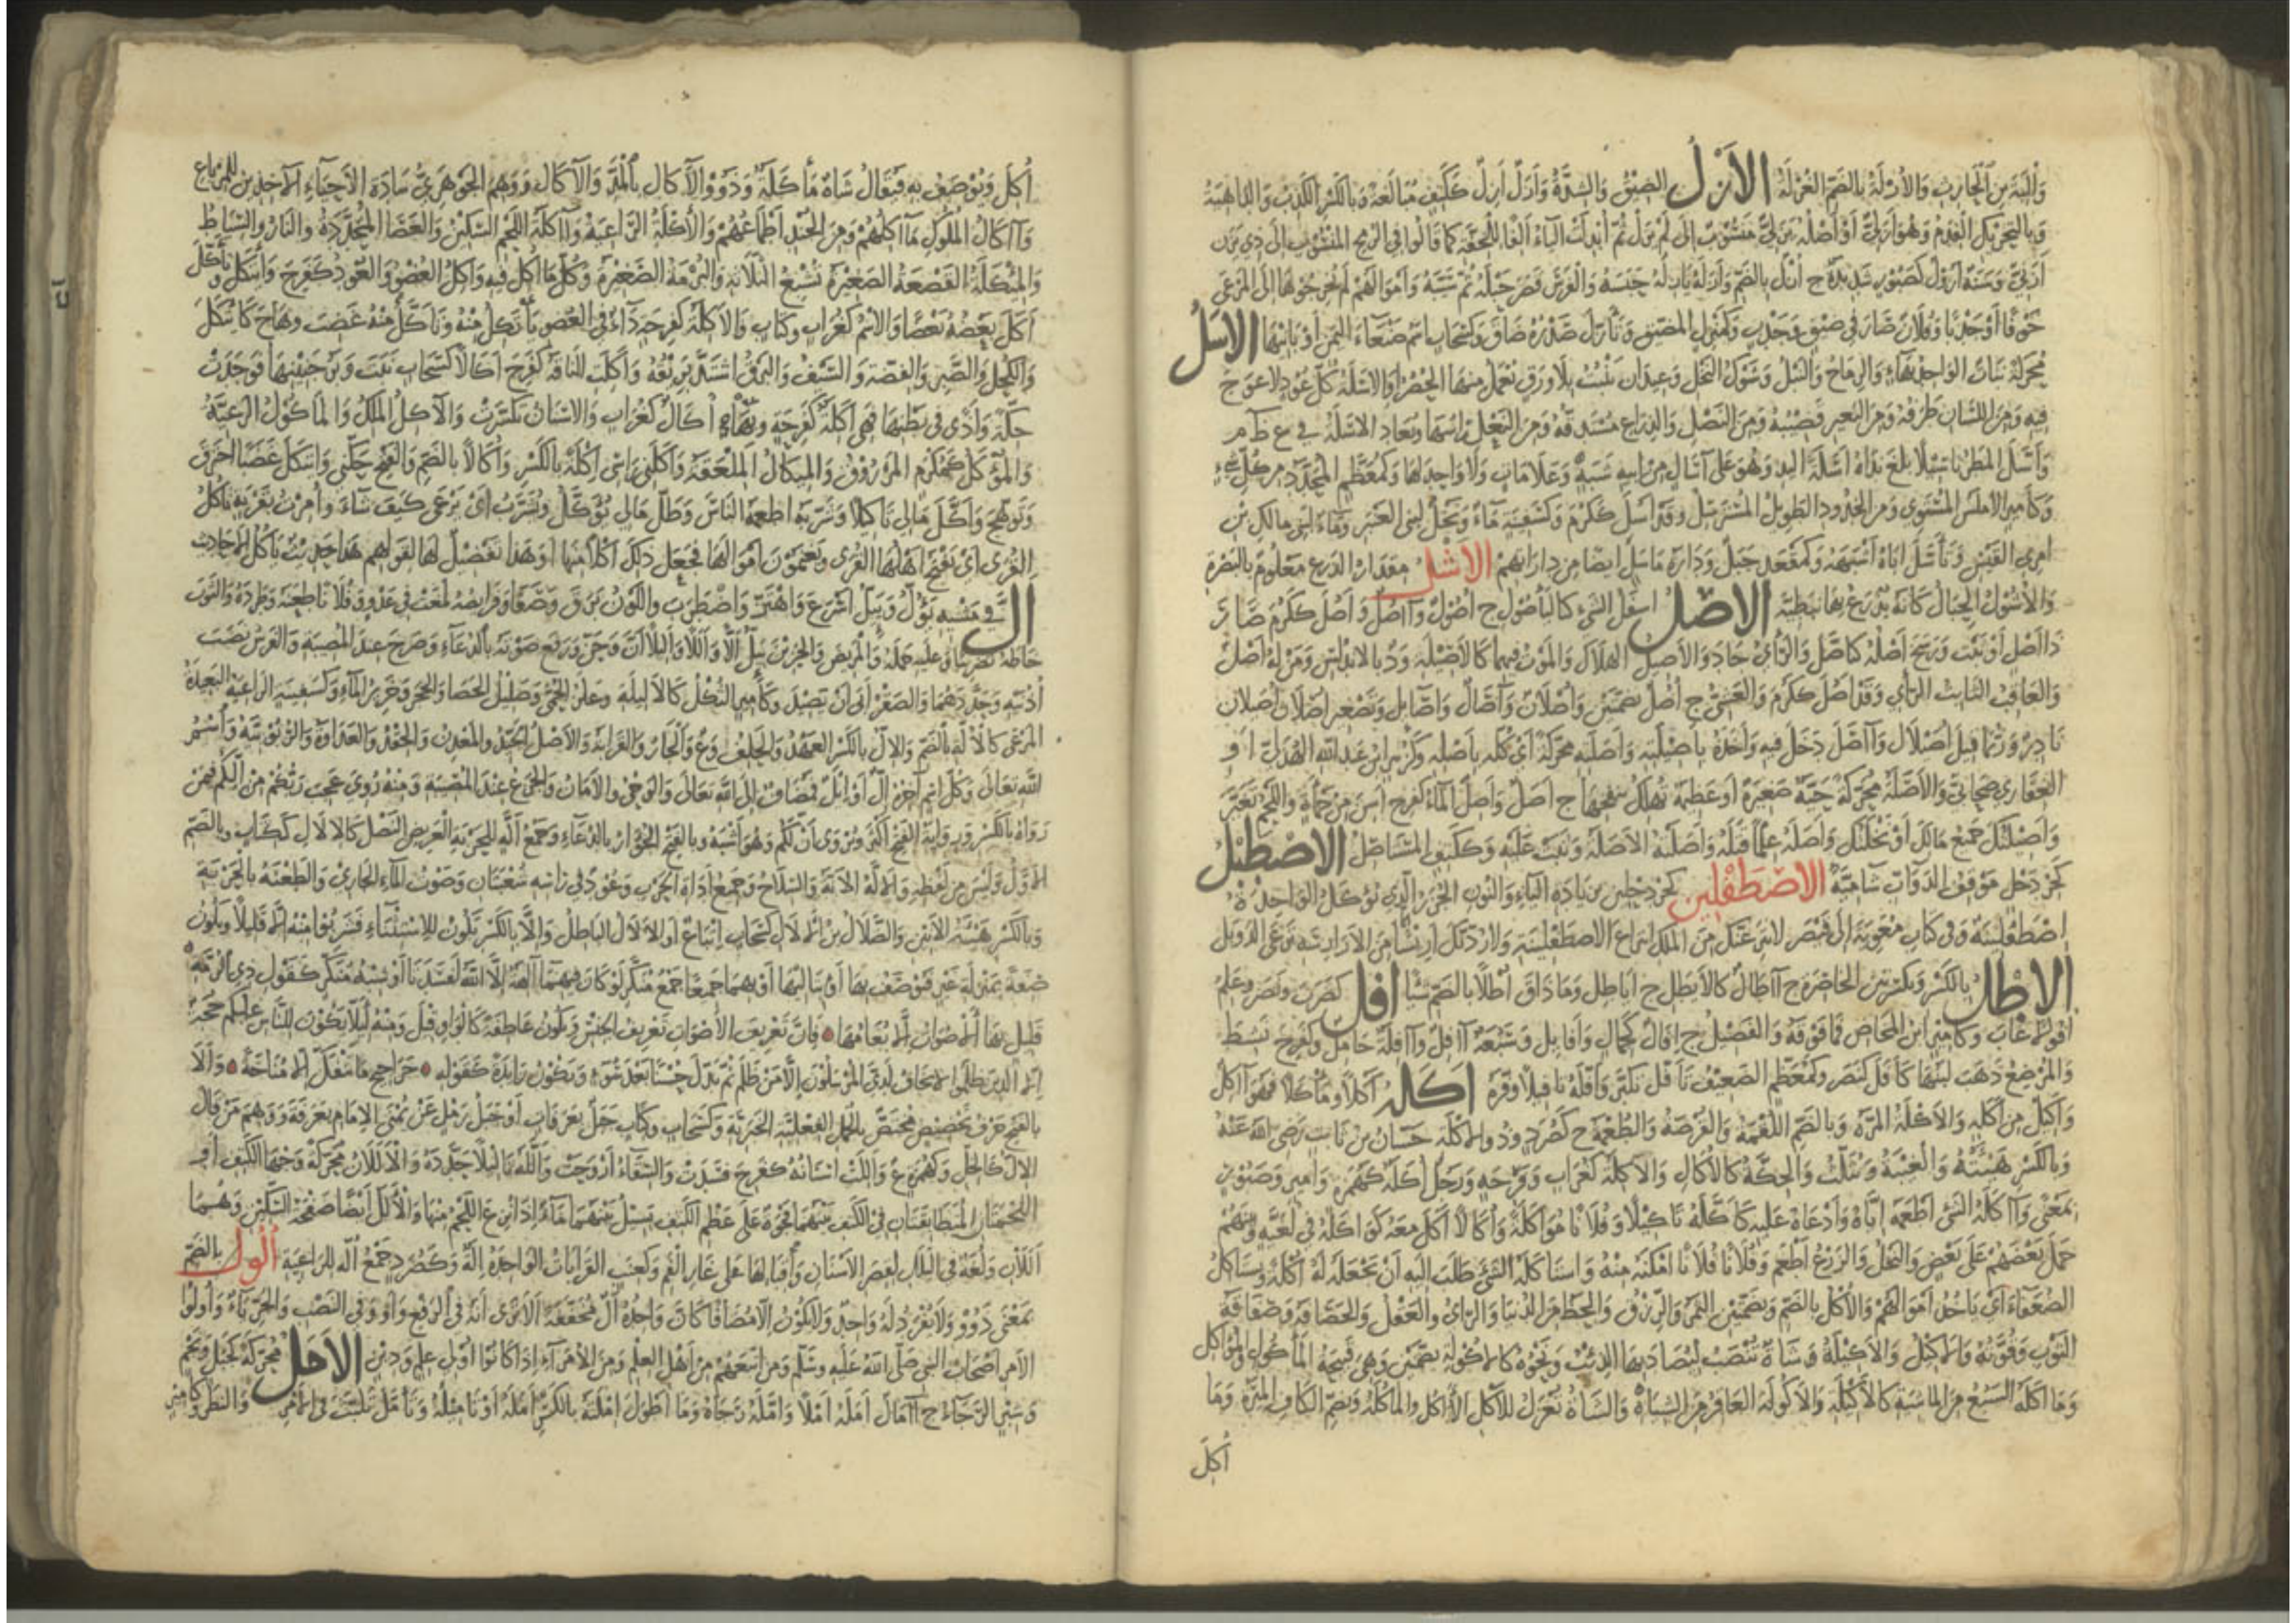 الأَزْلُ الضيق والشدة وأزل أزل ككتف مبالغة وبالكسر الكذب والداهية
وبالتحريك القدم وهو أزلي أو أصله يزلي منسوب الى لم يزل ثم أبدلت الياء ألفا للخفة كما قالوا في الرمح المنسوب الى ذي يزن
أزني وسنة أزول كصبور شديدة ج أزل بالضم وأزله يأزله حبسه والفرس قصر حبله ثم سيبه وأموالهم لم يخرجوها إلى المرعى
خوفا أو جدبا وفلان صار في ضيق وجدب وكمنزل المضيق وتأزل صدره ضاق وكسحاب اسم صنعاء اليمن أو بانيها الأسل
محركة نبات الواحدة بهاء والرماح والنبل وشوك النخل وعيدان تنبت بلا ورق يعمل منها الحصر والأسلة كل عود لا عوج
فيه ومن اللسان طرفه ومن البعير قضيبه ومن النصل والذراع مستدقه ومن النعل رأسها
وأسل المطر تأسيلا بلغ نداه أسلة اليد وهو على آسال من أبيه شبه وعلامات ولا واحد لها وكمعظم المحدد من كل شيء
وكأمير الأملس المستوي ومن الخدود الطويل المسترسل وقد أسل ككرم
امرئ القيس وتأسل أباه أشبهه وكمقعد جبل ودارة مأسل أيضا من داراتهم الأشل مقدار الذرع معلوم بالبصرة
والأشول الحبال كأنه يذرع بها نبطية الأصل أسفل الشيء كاليأصول ج أصول وآصل وأصل ككرم صار
ذا أصل أو ثبت ورسخ أصله كتأصل والرأي جاد والأصيل الهلاك والموت فيهما كالأصيلة ود بالاندلس ومن له أصل
والعاقب الثابت الرأي وقد أصل ككرم والعشي ج أصل بضمتين وأصلان وآصال وأصائل وتصغير أصلان أصيلان
نادر وربما قيل أصيلال وآصل دخل فيه وأخذه بأصيلته وأصلته محركة أي كله بأصله وكزبير ابن عبد الله الهذلي أو
الغفاري صحابي والأصلة محركة حية صغيرة أو عظيمة تهلك بنفخها ج أصل وأصل الماء كفرح أسن من حمأة واللحم تغير
وأصيلتك جميع مالك أو نخلتك وأصله علما قتله وأصلته الأصلة وثبت عليه وككتف المستأصل الاصطبل
كجردحل موقف الدواب شامية الاصطفلين كجردحلين بزيادة الياء والنون الجزر الذي يؤكل الواحدة
اصطفلينة وفي كتاب معوية إلى قيصر لأنتزعنك من الملك انتزاع الاصطفلينة ولأردنك إريسا من الأرارسة ترعى الدوبل
الإطل بالكسر وبكسرتين الخاصرة ج آطال كالأيطل ج أياطل وما ذاق أطلا بالضم شيئا أفل كضرب ونصر وعلم
أفولا غاب وكأمير ابن المخاض فما فوقه والفصيل ج إفال كجمال وأفايل وسبعة آفل وآفلة حامل وكفرح نشط
والمرضع ذهب لبنها كأفل كنصر وكمعظم الضعيف تأفل تكبر وأفله تأفيلا وقره أكله أكلا ومأكلا فهو آكل
وأكيل من أكلة والأكلة المرة وبالضم اللقمة والقرصة والطعمة ج كصرد وذو الأكلة حسان بن ثابت رضي الله عنه
وبالكسر هيئته والغيبة ويثلث والحكة كالأكال والأكلة كغراب وفرحة ورجل أكلة كهمزة وأمير وصبور
بمعنى وآكله الشيء أطعمه إياه وادعاه عليه كأكله تأكيلا وفلانا مؤاكلة وإكالا أكل معه كواكله في لغية وبينهم
حمل بعضهم على بعض والنخل والزرع أطعم وفلانا فلانا أمكنه منه واستأكله الشيء طلب إليه أن تجعله له أكلة ويستأكل
الضعفاء أي يأخذ أموالهم والأكل بالضم وبضمتين الثمر والرزق والحظ من الدنيا والرأي والعقل والحصافة وصفاقة
الثوب وقوته والأكيل والأكيلة شاة تنصب ليصاد بها الذئب ونحوه كالأكولة بضمتين وهي قبيحة المأكول والمؤاكل
وما أكله السبع من الماشية كالأكيلة والأكولة العاقر من الشياه والشاة تعزل للأكل والمأكلة وتضم الكاف الميرة وما
أكل
أكل ويوصف به فيقال شاة مأكلة وذوو الآكال بالمد والآكال ووهم الجوهري سادة الأحياء الآخذين للمرباع
وآكال الملوك مآكلهم ومن الجند أطماعهم والآكلة الراعية وآكلة اللحم السكين والعصا المحددة والنار والسياط
والمئكلة القصعة الصغيرة تشبع الثلاثة والبرمة الصغيرة وكل ما أكل فيه وأكل العضو والعود كفرح وائتكل وتأكل
أكل بعضه بعضا والاسم كغراب وكتاب والأكلة كفرحة داء في العضو يأتكل منه وتأكل منه غضب وهاج كائتكل
والكحل والصبر والفضة والسيف والبرق اشتد بريقه وأكلت الناقة كفرح أكالا كسحاب نبت وبر جنينها فوجدت
حكة وأذى في بطنها فهي أكلة كفرحة وبها أكال كغراب والاسنان تكسرت والآكل الملك والمأكول الرعية
والمؤكل كمكرم المرزوق والميكال الملعقة وأكلني رأسي إكلة بالكسر وأكالا بالضم والفتح حكني وائتكل غضبا احترق
وتوهج وأكل مالي تأكيلا وشربه أطعمه الناس وظل مالي يؤكل ويشرب أي يرعى كيف شاء وأمرت بقرية تأكل
القرى أي يفتح أهلها القرى ويغنمون أموالها فجعل ذلك أكلا منها أو هذا تفضيل لها كقولهم هذا حديث يأكل الأحاديث
أل في مشيه يؤل ويئل أسرع واهتز واضطرب واللون برق وصفا وفرائصه لمعت في عدو وفلانا طعنه وطرده والثوب
خاطه تضريبا وعليه حمله والمريض والحزين يئل ألا وأللا وأليلا أن وحن ورفع صوته بالدعاء وصرخ عند المصيبة والفرس نصب
أذنيه وحددهما والصقر أبى أن يصيد وكأمير الثكل كالأليلة وعلز الحمى وصليل الحصا والحجر وخرير الماء وكسفينة الراعية البعيدة
المرعى كالألة بالضم والإل بالكسر العهد والحلف وع والجار والقرابة والأصل الجيد والمعدن والحقد والعداوة والربوبية واسم
الله تعالى وكل اسم آخره إل أو إيل فمضاف إلى الله تعالى والوحي والأمان والجزع عند المصيبة ومنه روي عجب ربكم من إلكم فيمن
رواه بالكسر ورواية الفتح أكثر ويروى أزلكم وهو أشبه وبالفتح الجؤار بالدعاء وجمع ألة للحربة العريضة النصل كالإلال ككتاب وبالضم
الأول وليس من لفظه والألة الأنة والسلاح وجميع أداة الحرب وعود في رأسه شعبتان وصوت الماء الجاري والطعنة بالحربة
وبالكسر هيئة الأنين والضلال بن الألال كسحاب إتباع أو الألال الباطل وإلا بالكسر تكون للاستثناء فشربوا منه إلا قليلا وتكون
صفة بمنزلة غير فيوصف بها أو بتاليها أو بهما جميعا جمع منكر لو كان فيهما آلهة إلا الله لفسدتا أو شبه منكر كقول ذي الرمة
قليل بها الأصوات إلا بغامها فإن تعريف الأصوات تعريف الجنس وتكون عاطفة كالواو قيل ومنه لئلا يكون للناس عليكم حجة
إلا الذين ظلموا لا يخاف لدي المرسلون إلا من ظلم ثم بدل حسنا بعد سوء وتكون زائدة كقوله حراجيج ما تنفك إلا مناخة وألا
بالفتح حرف تحضيض مختص بالجمل الفعلية الخبرية وكسحاب وكتاب جبل بعرفات أو حبل رمل عن يمين الإمام بعرفة ووهم من قال
الإل كالخل وكهمزة ع وأللت أسنانه كفرح فسدت والسقاء أروحت وألله تأليلا حدده والأللان محركة وجها الكتف أو
اللحمتان المتطابقتان في الكتف بينهما فجوة على عظم الكتف يسيل بينهما ماء إذا نزع اللحم منها والألل أيضا صفحة السكين وهما
أللان ولغة في اليلل لقصر الأسنان وإقبالها على غار الفم وكعنب القرابات الواحدة إلة وكصرد جمع ألة للراعية ألول بالضم
بمعنى ذوو ولا يفرد له واحد ولا يكون إلا مضافا كأن واحده أل مخففة ألا ترى أنه في الرفع واو وفي النصب والجر ياء وأولوا
الأمر أصحاب النبي صلى الله عليه وسلم ومن اتبعهم من أهل العلم ومن الأمراء إذا كانوا أولي علم ودين الأمل محركة كجبل ونجم
وشبر الرجاء ج آمال أمله أملا وأمله رجاه وما أطول إملته بالكسر أمله أو تأميله وتأمل تلبث في الأمر والنظر وكأمير